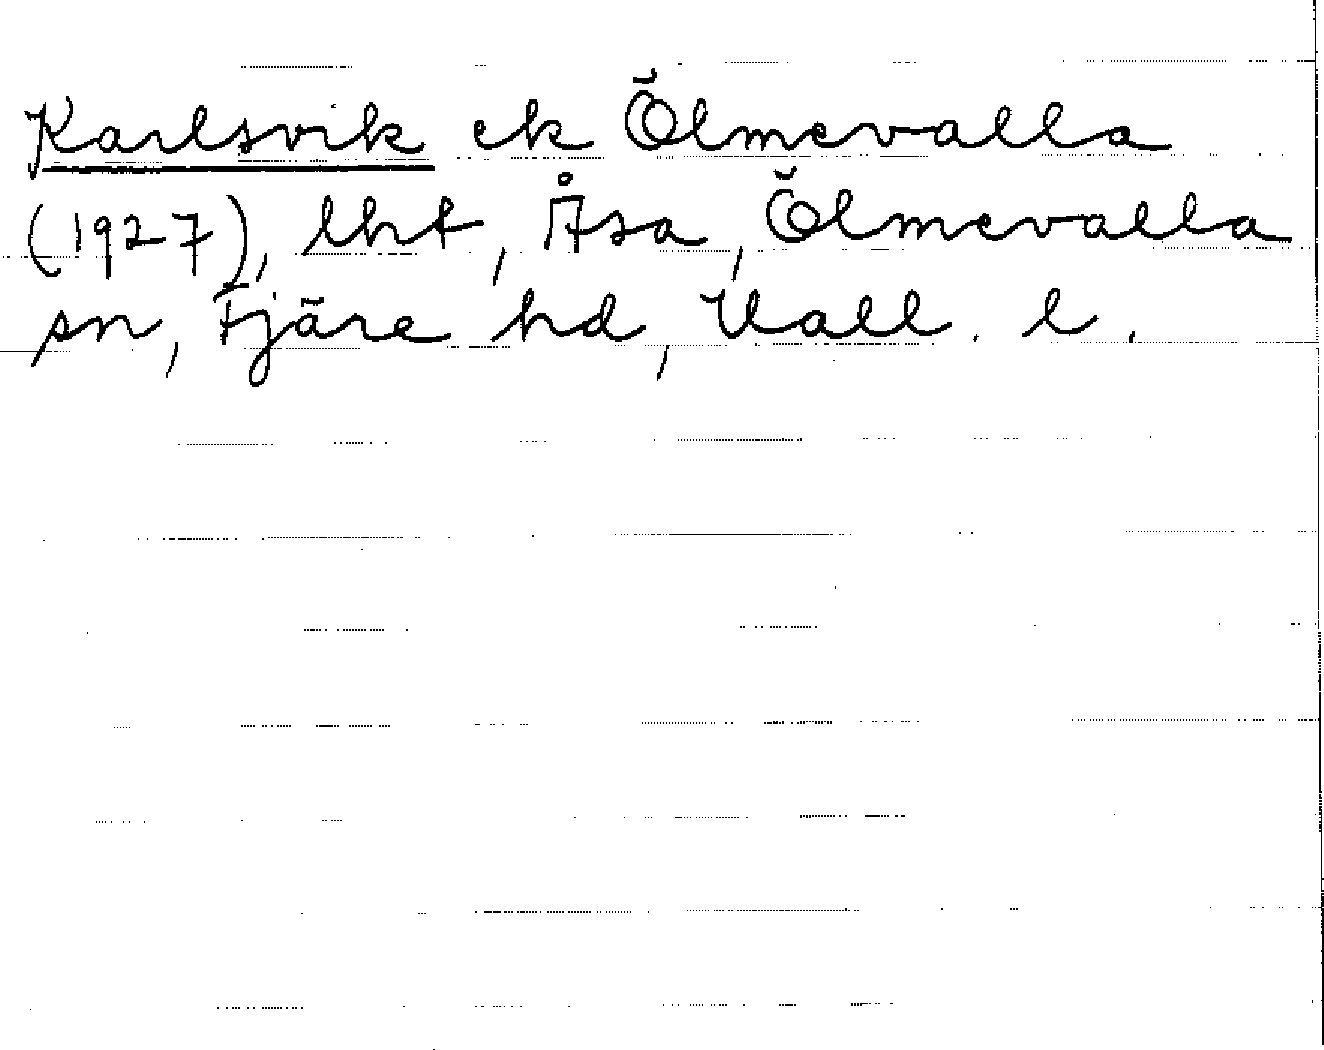 Karlsvik ek Ölmevalla
(1927), lht, Åsa, Ölmevalla
sn, Fjäre hd, Hall. l.